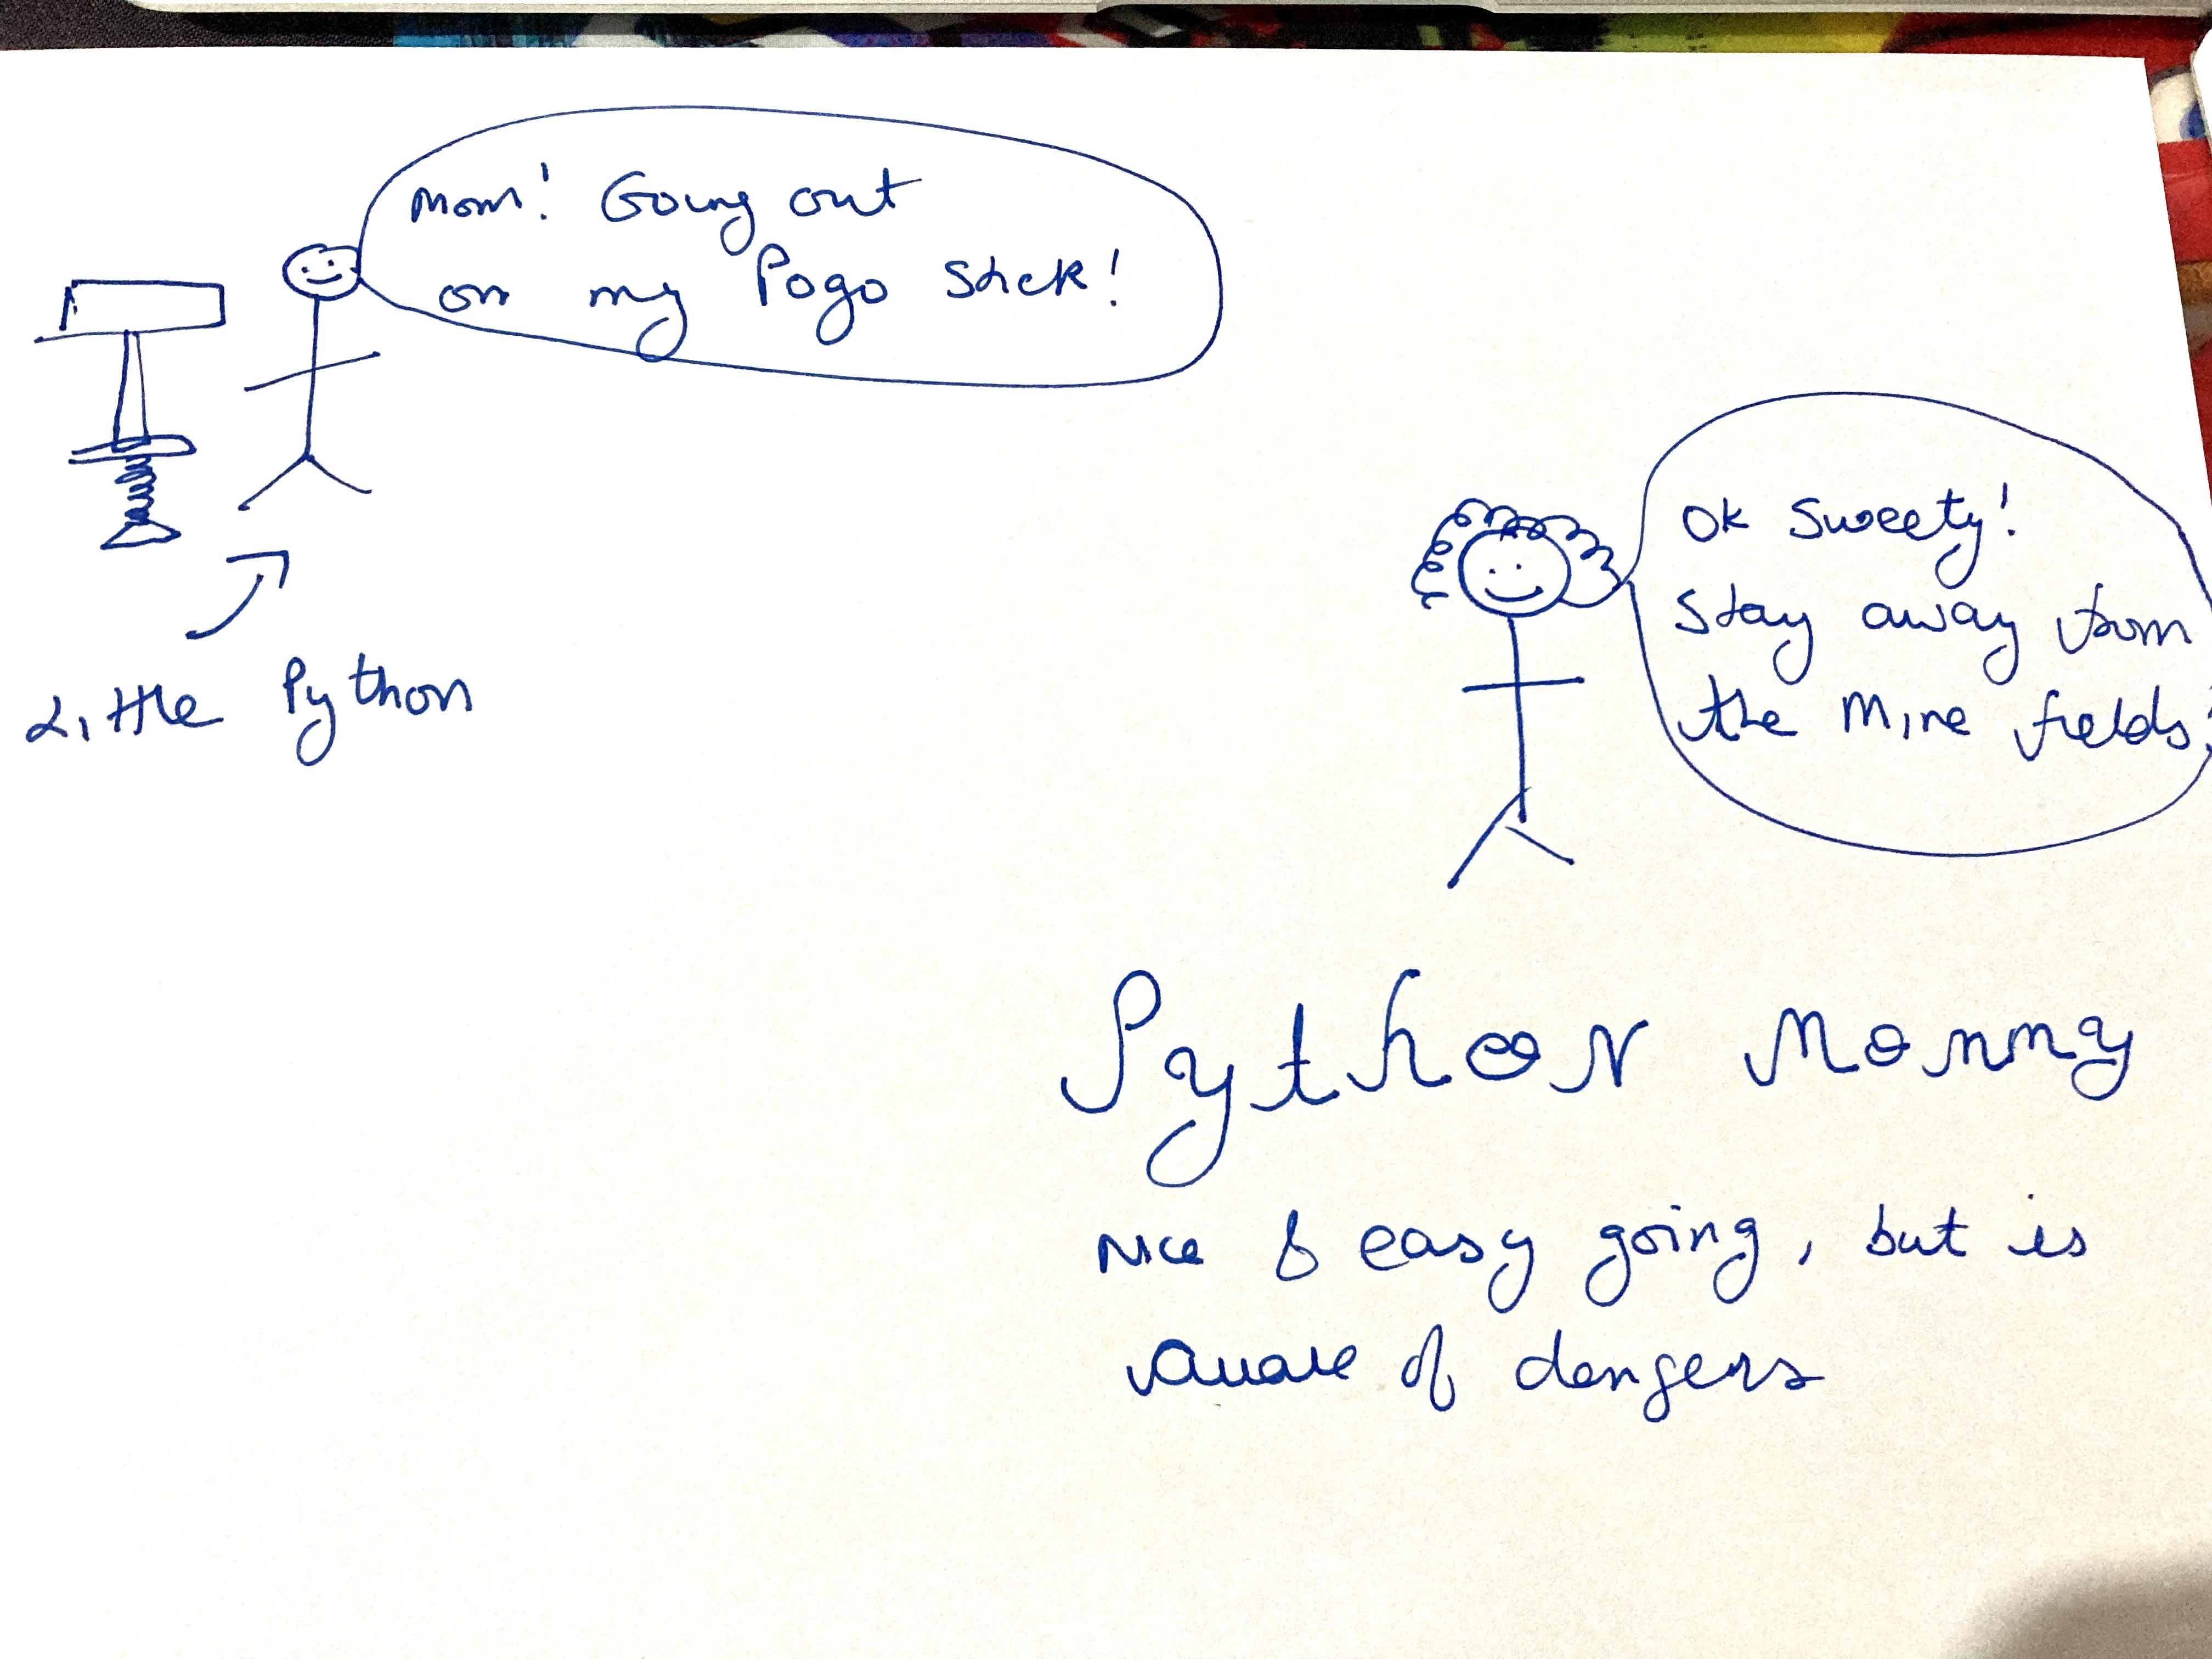 Mom! Going out
on my Pogo Stick!
Little Python
Ok Sweety!
Stay away from
the Mine fields!
Python Mommy
Nice & easy going, but is
aware of dangers